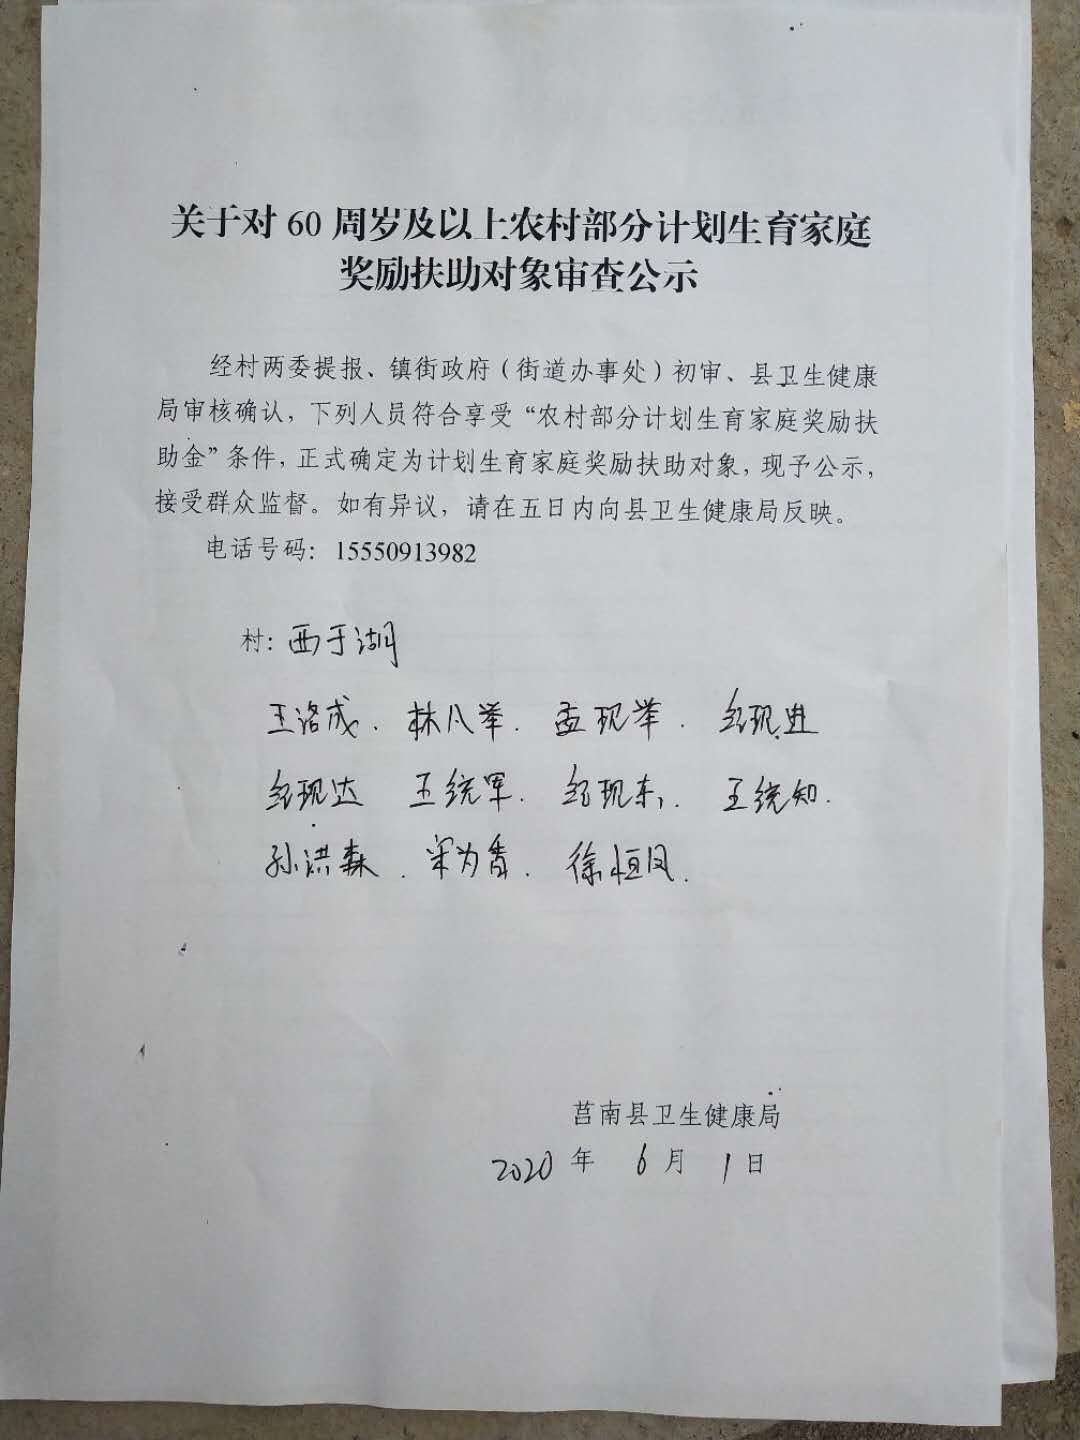 关于对 60 周岁及以上农村部分计划生育家庭
奖励扶助对象审查公示
经村两委提报、镇街政府（街道办事处）初审、县卫生健康
局审核确认，下列人员符合享受“农村部分计划生育家庭奖励扶
助金”条件，正式确定为计划生育家庭奖励扶助对象，现予公示，
接受群众监督。如有异议，请在五日内向县卫生健康局反映。
电话号码：15550913982
村：西于湖
王洛成、林凡举、孟现举、纪现进
纪现达 王统军、纪现东、王统知.
孙洪森、宋为香、徐恒凤.
莒南县卫生健康局
2020 年 6 月 1 日